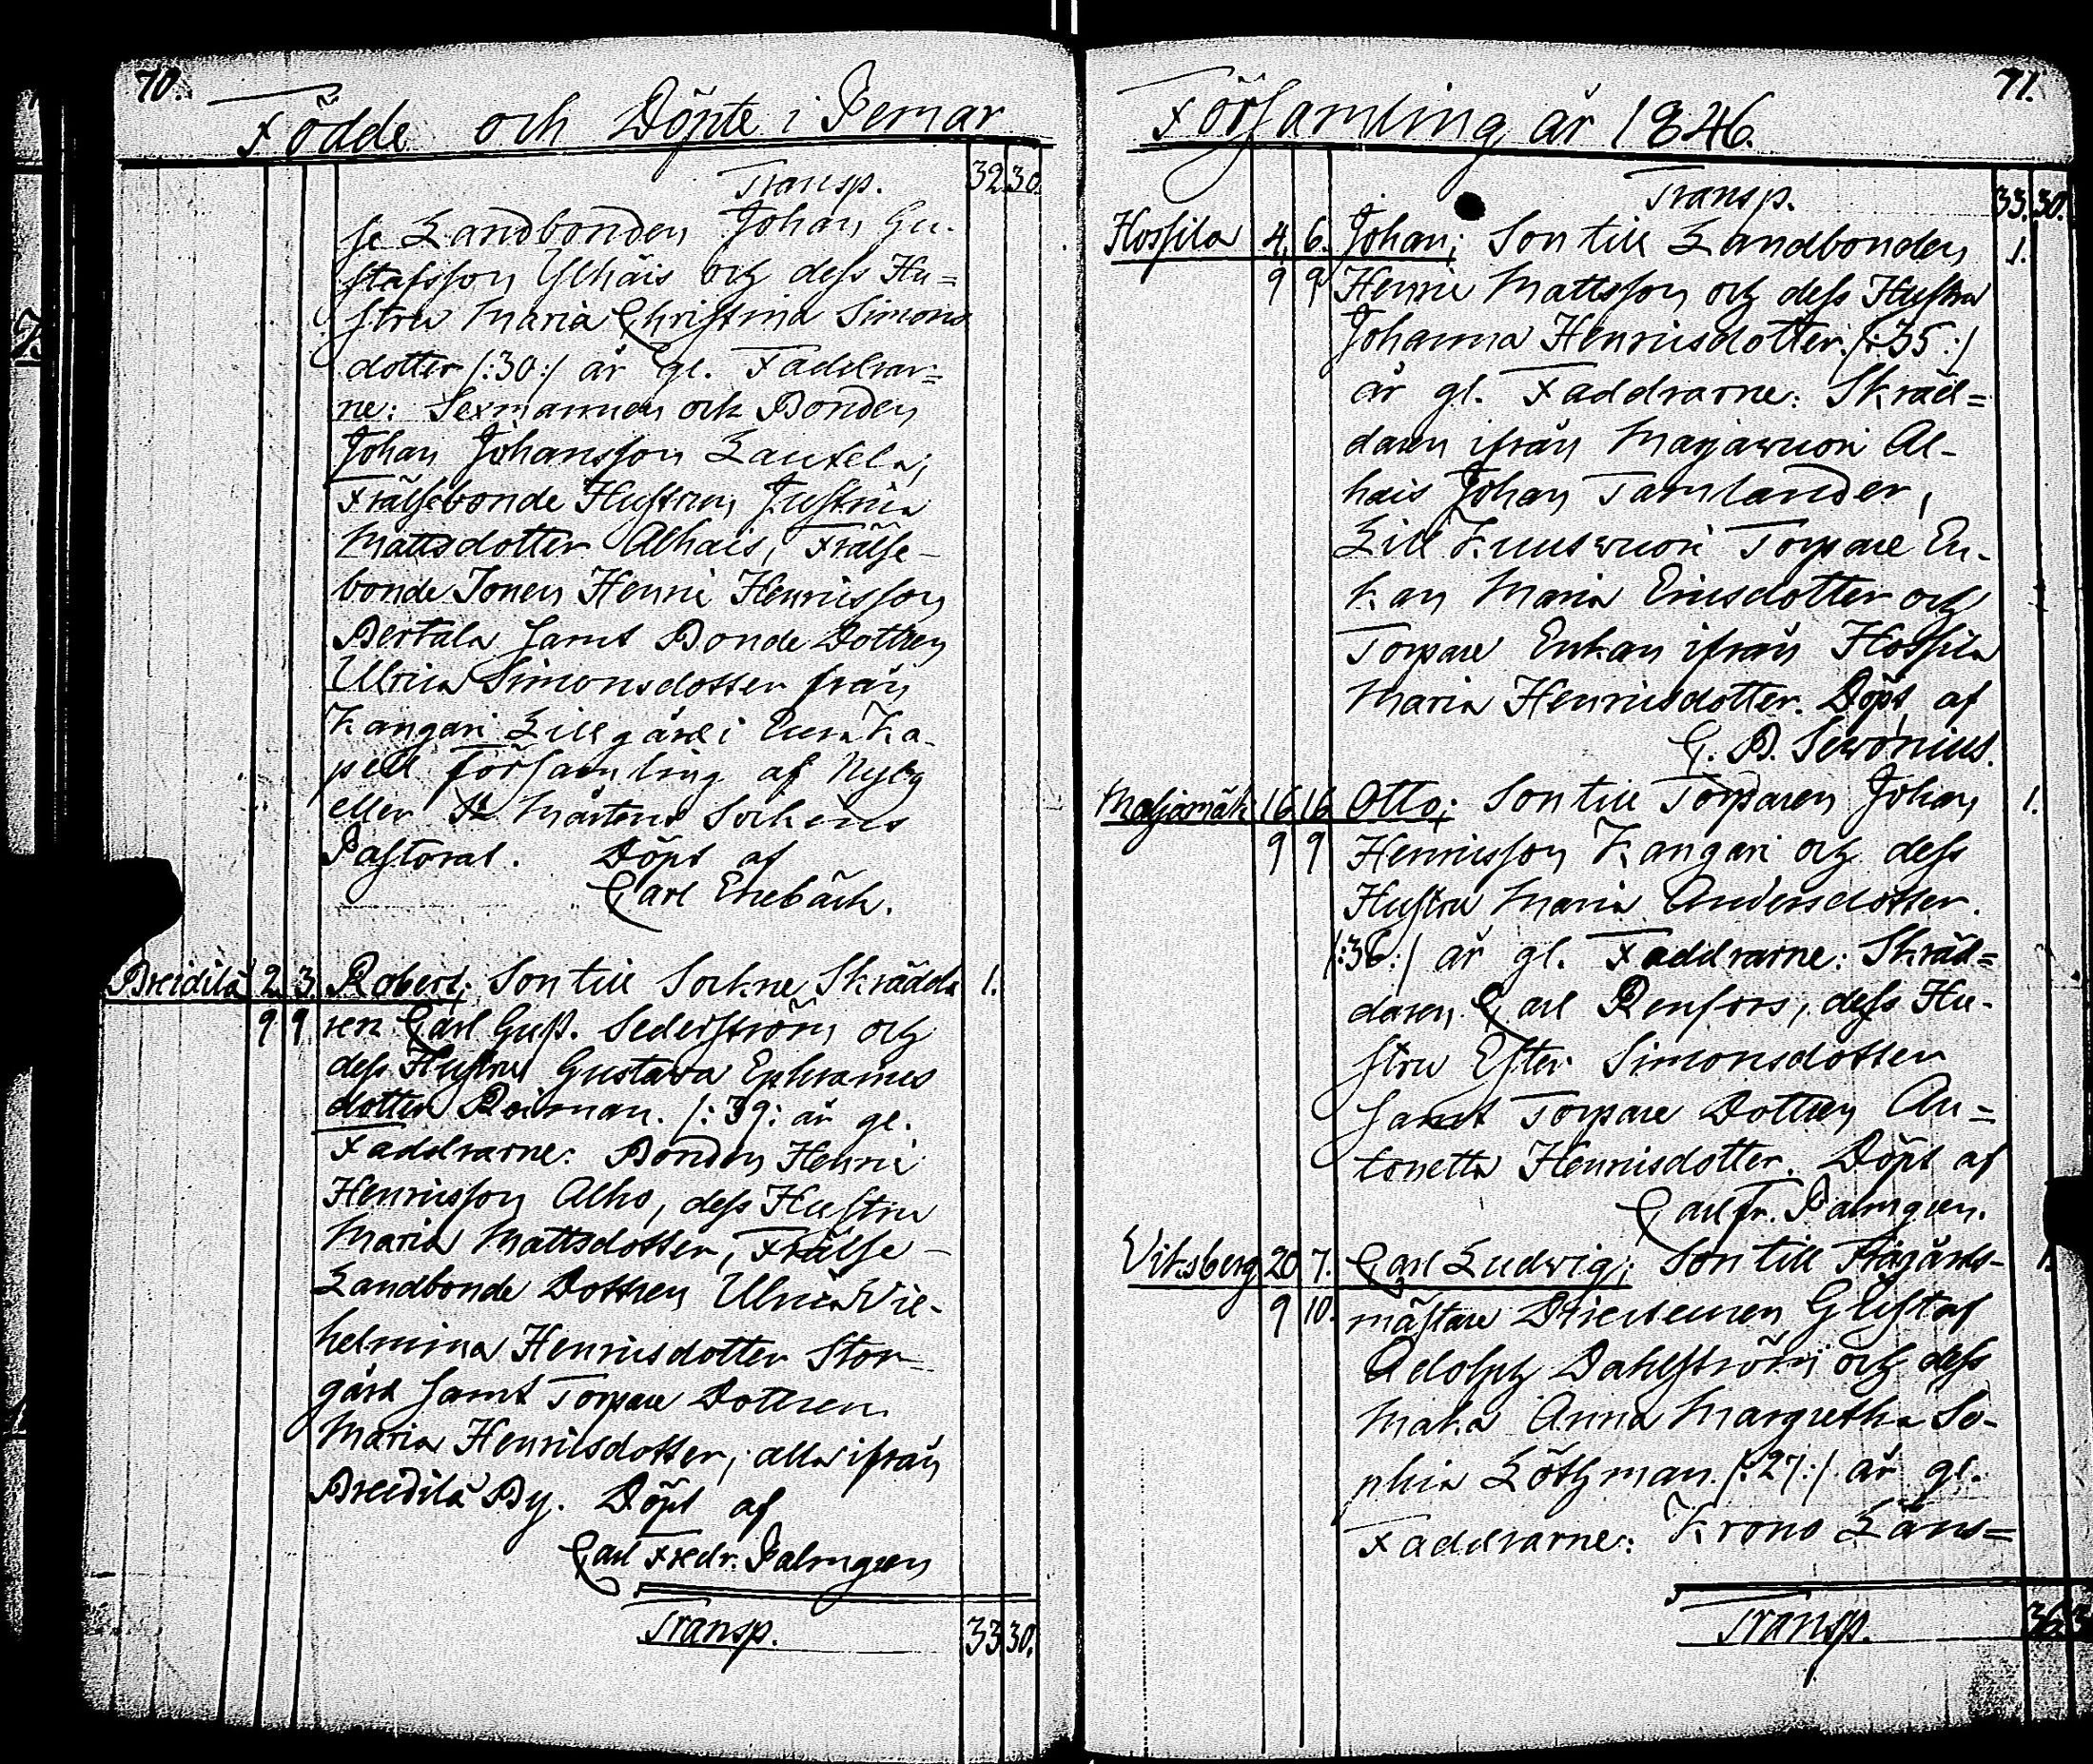 70.
Födde och Döpte i Pemar
Transp. 32 30.
se Landbonden Johan Gu-
stafsson Ylhäis och dess Hu=
stru Maria Christina Simons
dotter /:30:/ år gl. Faddrar=
ne: Sexmannen och Bonden
Johan Johansson Laukela;
Frälsebonde Hustrun Justina
Mattsdotter Alhais, Frälse-
bonde Sonen Henric Henricsson
Bertala samt Bonde Dottren
Ulrica Simonsdotter från
Kangari Lillgård i Eura Ka-
pell Församling af Nyby
eller St Mårtens Sockens
Pastorat. Döpt af
Carl Enebäck.
Preidilä 2 3 Robert; Son till Sockne Skrädda 1.
9 9. ren Carl Gust. Sederström och
dess Hustru Gustava Ephraims
dotter Roiman. /:39: år gl.
Faddrarne: Bonden Henric
Henricsson Alho, dess Hustru
Maria Mattsdotter, Frälse-
Landbonde Dottren Ulrica Vil-
helmina Henricsdotter Stor-
gård samt Torpare Dottren
Maria Henricsdotter; alla ifrån
Preidilä By. Döpt af
Carl Fredr. Palmgren
Transp. 33 30.
71.
Församling år 1846.
Transp. 33. 30.
Hossila 4. 6. Johan; Son till Landbonden 1.
9 9 Henric Mattsson och dess Hustru
Johanna Henricsdotter. /:35:/
år gl. Faddrarne: Skräd=
daren ifrån Marjawuori Al-
hais Johan Tamlander,
Lill Kuuswuori Torpare En-
kan Maria Ericsdotter och
Torpare Enkan ifrån Hossila
Maria Henricsdotter. Döpt af
G. B. Sewonius.
Marjamäk 16 16 Otto; Son till Torparen Johan 1.
9 9 Henricsson Kangari och dess
Hustru Maria Andersdotter.
/:36:/ år gl. Faddrarne: Skräd=
daren Carl Renfors, dess Hu-
stru Ester Simonsdotter
samt Torpare Dottren An=
tonetta Henricsdotter. Döpt af
Carl Fr. Palmgren.
Viksberg 20 7. Carl Ludwig; Son till Trägårds- 1.
9 10. mästare Gustaf
Adolph Dahlström och dess
Maka Anna Margretha So-
phia Löthman. /:27:/ år gl.
Faddrarne: Krono Läns=
Transp. 36. 3